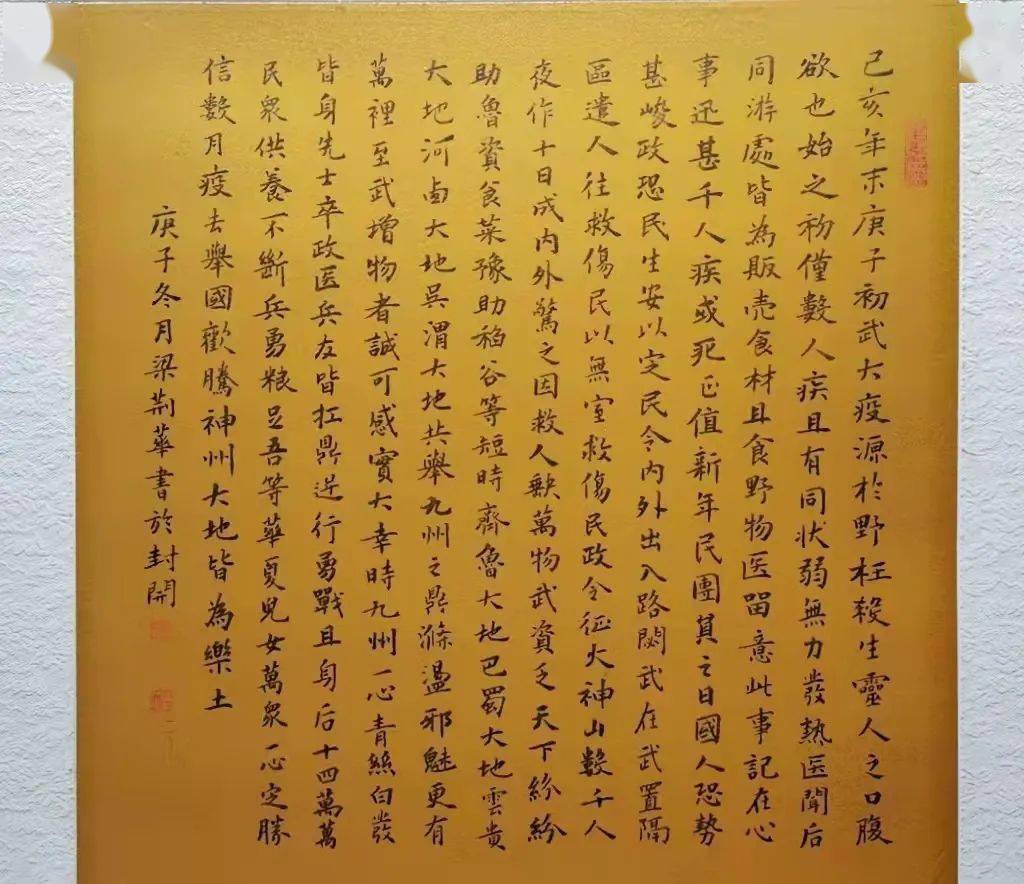 己亥年末庚子初武大疫源於野枉殺生靈人之口腹
欲也始之初僅數人疾且有同状弱無力發熱医聞后
同游處皆為販売食材且食野物医留意此事記在心
事迅甚千人疾或死正值新年民團員之日國人恐勢
甚峻政恐民生安以定民令内外出入路閉武在武置隔
區遣人往救傷民以無室救傷民政令征火神山數千人
夜作十日成内外驚之因救人缺萬物武資乏天下紛紛
助魯資食菜豫助稻谷等短時齊魯大地巴蜀大地雲贵
大地河卤大地吳渭大地共舉九州之鼎滌盪邪魅更有
萬裡至武增物者誠可感實大幸時九州一心青絲白發
皆身先士卒政医兵友皆扛鼎逆行勇戰且身后十四萬萬
民衆供養不斷兵勇粮足吾等華夏兒女萬衆一心定勝
信數月疫去舉國歡騰神州大地皆為樂土
庚子冬月梁荆華書於封開